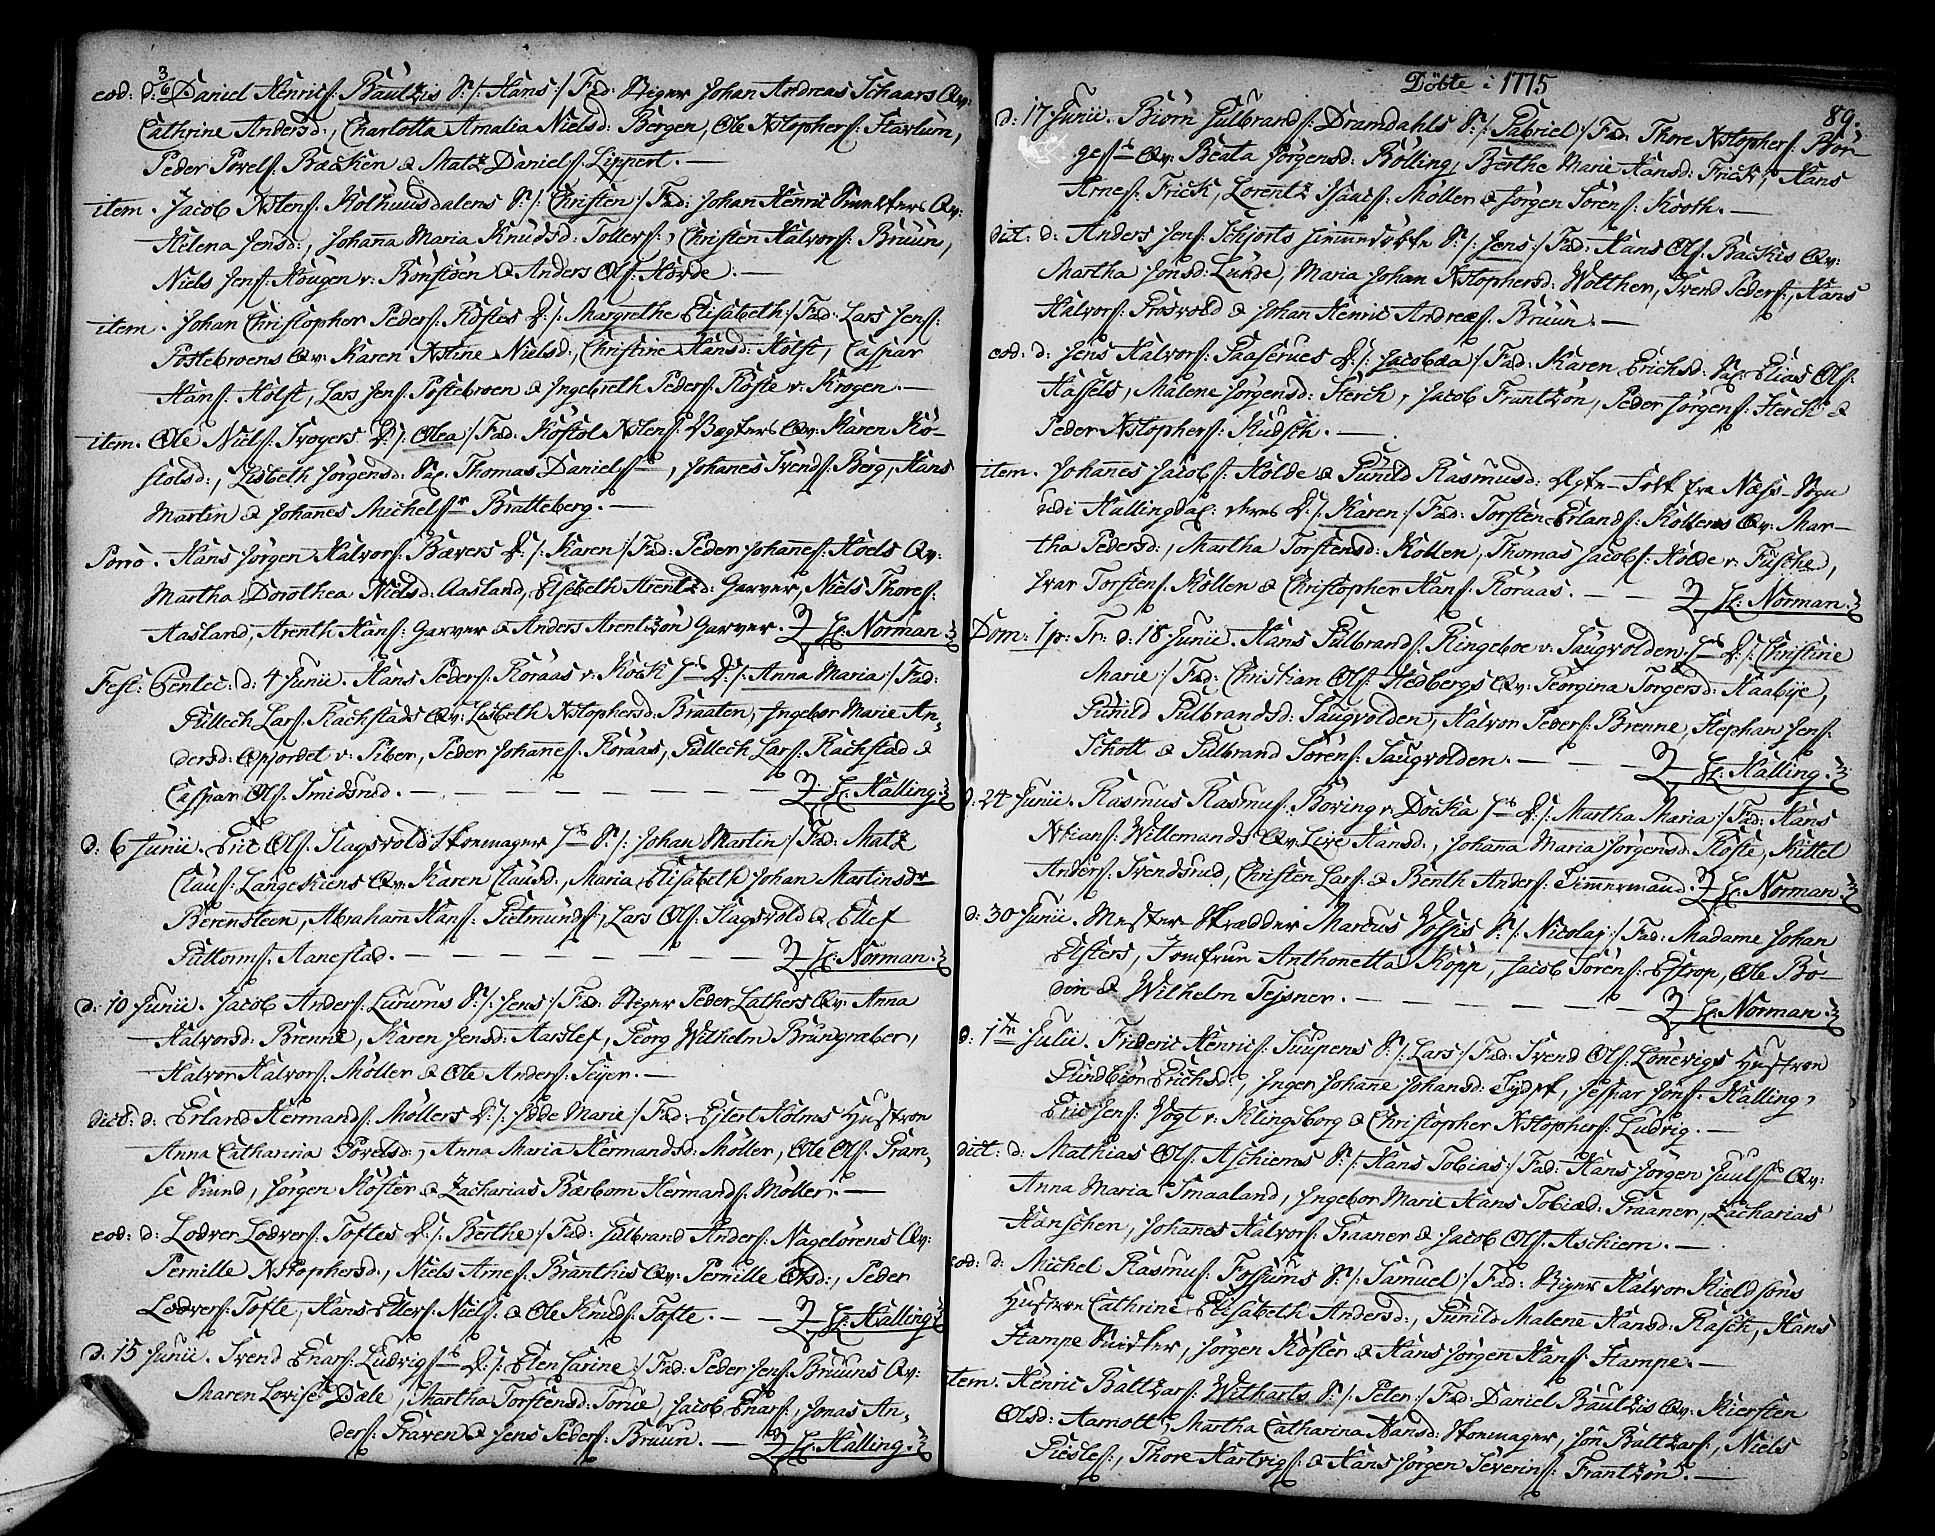 eod: d: 3/6 Daniel Henrics: Baultzis S: /: Hans :/ Fad: Stiger Johan Andreas Schaars Qv:
Cathrine Andersd:, Charlotta Amalia Nielsd: Bergen, Ole Xstophers: Stavlum,
Peder Povels: Backen & Matz Daniels: Lippert. —
item. Jacob Xstens: Kolhuusdalens S: /: Christen :/ Fad: Johan Henric Qv:
Helena Jensd:, Johanna Maria Knudsd: Tollefs:, Christen Halvors: Bruun,
Niels Jens: Hougen v: & Anders Ols: Hovde. —
item. Johan Christopher Peders: Kostes D: /: Margrethe Elisabeth :/ Fad: Lars Jens:
Postebroens Qv: Karen Xstine Nielsd:, Christine Hansd: Holst, Caspar
Hans: Holst, Lars Jens: Postebroen & Ingebreth Peders: Koste v: Krogen. —
item. Ole Niels: D: /: Olea :/ Fad: Kostol Xstens: Qv: Karen Ko-
stolsd:, Lisbeth Jørgensd: Thomas Daniels:, Johanes Svends: Berg, Hans
Martin & Johanes Michels: Bratteberg. —
Porro. Hans Jørgen Halvors: Bævers D: /: Karen :/ Fad: Peder Johanes: Hoels Qv:
Martha Dorothea Nielsd: Aasland, Elsebeth Arentzd: Garver, Niels Thores:
Aasland, Arenth Hans: Garver & Anders Arentzøn Garver. Hr: Norman.
Fest: Pentec: d: 4 Junii. Hans Peders: Roraas v: Kock D: /: Anna Maria :/ Fad:
Gullech Lars: Rachstads Qv: Lisbeth Xstophersd: Braaten, Ingebor Marie An-
dersd: Opjordet v: Siber, Peder Johanes: Roraas, Gullech Lars: Rachstad &
Caspar Ols: Smidsrud. — Hr: Halling.
d: 6 Junii. Eric Ols: Hagsvold Skomager S: /: Johan Martin :/ Fad: Matz
Claus: Langeskiens Qv: Karen Clausd:, Maria Elisabeth Johan Martinsdr
Berensteen, Abraham Hans: Gietmunds:, Lars Ols: Hagsvold & Ellef
Guttorms: Aanestad. — Hr: Norman.
d: 10 Junii. Jacob Anders: Lurums S: /: Jens :/ Fad: Stiger Peder Lathers Qv: Anna
Halvorsd: Brenne, Karen Jensd: Aarslef, Georg Wilhelm Brungraber,
Halvor Halvors: Möller & Ole Anders: Seyer. —
dict: d: Erland Hermands: Möllers D: /: Hede Marie :/ Fad: Eilert Holms Hustroe
Anna Catharina Povelsd:, Anna Maria Hermandsd: Möller, Ole Ols: Gram-
se Smed, Jørgen Köster & Zacharias Bærbom Hermands: Möller. —
eod: d: Lodver Lodvers: Toftes D: /: Berthe :/ Fad: Gulbrand Anders: Nageløbens Qv:
Pernille Xstophersd:, Niels Arnes: Branthis Qv: Pernille Olsd:, Peder
Lodvers: Tofte, Hans Ellefs: Niels: & Ole Knuds: Tofte. — Hr: Halling
d: 15 Junii. Svend Enars: Ludvigs: D: /: Elen Carine :/ Fad: Peder Jens: Bruuns Qv:
Maren Lovise Dale, Martha Torstensd: Torue, Jacob Enars:, Jonas An-
ders: Graven & Jens Peders: Bruun. — Hr: Halling.
Döbte i 1775
89.
d: 17 Junii. Biörn Gulbrands: Dramdahls S: /: Gabriel :/ Fad: Thore Xstophers: Bör-
ges: Qv: Beata Jørgensd: Bölling, Berthe Marie Hansd: Frick, Hans
Arnes: Frick, Lorentz Isaac: Möller & Jörgen Sörens: Kooth. —
dict: d: Anders Jens: Schjorts S: /: Jens :/ Fad: Hans Ols: Backis Qv:
Martha Jonsd: Lunde, Maria Johan Xstophersd: Wölther, Svend Peders:, Hans
Halvors: Prosvold & Johan Henric Andreæs: Bruun. —
eod: d: Jens Halvors: Gaaserues D: /: Jacobæa :/ Fad: Karen Erichsd: Elias Ols:
Hassels, Malene Jørgensd: Sterch, Jacob Frantzøn, Peder Jørgens: Sterch &
Peder Xstophers: Kudsch. —
item. Johannes Jacobs: Holde & Gunild Rasmusd: Ægte-Folk fra Næss-Sogn
udi Hallingdal: deres D: /: Karen :/ Fad: Torsten Erlands: Kollens Qv: Mar-
tha Pedersd:, Martha Torstensd: Kollen, Thomas Jacobs: Holde v: Fusche,
Ivar Torstens: Kollen & Christopher Hans: Roraas. — Hr: Norman.
Dom: 1 p: Tr: d: 18 Junii. Hans Gulbrands: Ringeboe v: Saugvolden D: /: Christine
Marie :/ Fad: Christian Ols: Hedbergs Qv: Georgina Torgersd: Haabye,
Gunild Gulbrandsd: Saugvolden, Halvor Peders: Brenne, Stephan Jens:
Schott & Gulbrand Sörens: Saugvolden. — Hr: Halling.
d: 24 Junii. Rasmus Rasmus: Boving v: Docka D: /: Martha Maria :/ Fad: Hans
Xtians: Willemands Qv: Live Hansd:, Johanna Maria Jørgensd: Köste, Kittel
Anders: Svendsrud, Christen Lars: & Benth Anders: Timmermand. Hr: Norman.
d: 30 Junii. Mester Skrædder Marcus Vossis S: /: Nicolaj :/ Fad: Madame Johan
Elsters, Jomfrue Anthonetta Köpp, Jacob Sörens: Estrop, Ole Bo-
din & Wilhelm Tejsner. — Hr: Norman.
d: 1te Julii. Frideric Henrics: Suupens S: /: Lars :/ Fad: Svend Ols: Lonevigs Hustroe
Gundbiör Erichsd:, Inger Johanne Johansd: Sydst, Jesper Jons: Halling,
Eric Jens: Vogt v: Klingsborg & Christopher Xstophers: Ludvig. —
dict: d: Mathias Ols: Aschiems S: /: Hans Tobias :/ Fad: Hans Jørgen Juuls: Qv:
Anna Maria Smaaland, Ingebor Marie Hans Tobiæd: Graaner, Zacharias
Hanschen, Johannes Halvors: Graaner & Jacob Ols: Aschiem. —
eod: d: Michel Rasmus: Fossums S: /: Samuel :/ Fad: Stiger Halvor Kieldsøns
Hustroe Cathrine Elisabeth Andersd:, Gunild Malene Hansd: Rasch, Hans
Stampe Snidker, Jørgen Köster & Hans Jørgen Hans: Stampe. —
item. Henric Baltzars: Witharts S: /: Peter :/ Fad: Daniel Baultzis Qv: Kiersten
Olsd: Aamott, Martha Catharina Hansd: Skomager, Jon Baltzars:, Niels
Giesles:, Thore Hartvigs: & Hans Jørgen Severins: Frantzøn. —